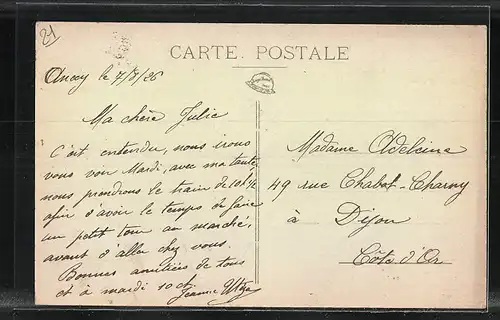 21
CARTE POSTALE
Ancey le 7/8/26
Ma chère Julie
C'est entendu, nous irons
vous voir Mardi, avec ma tante
nous prendrons le train de 10h ½
afin d'avoir le temps de faire
un petit tour au marché,
avant d'aller chez vous.
Bonnes amitiés de tous
et à mardi 10 ct.
Jeanne
Madame Adeleine
49 rue Chabot-Charny
à Dijon
Côte d'Or